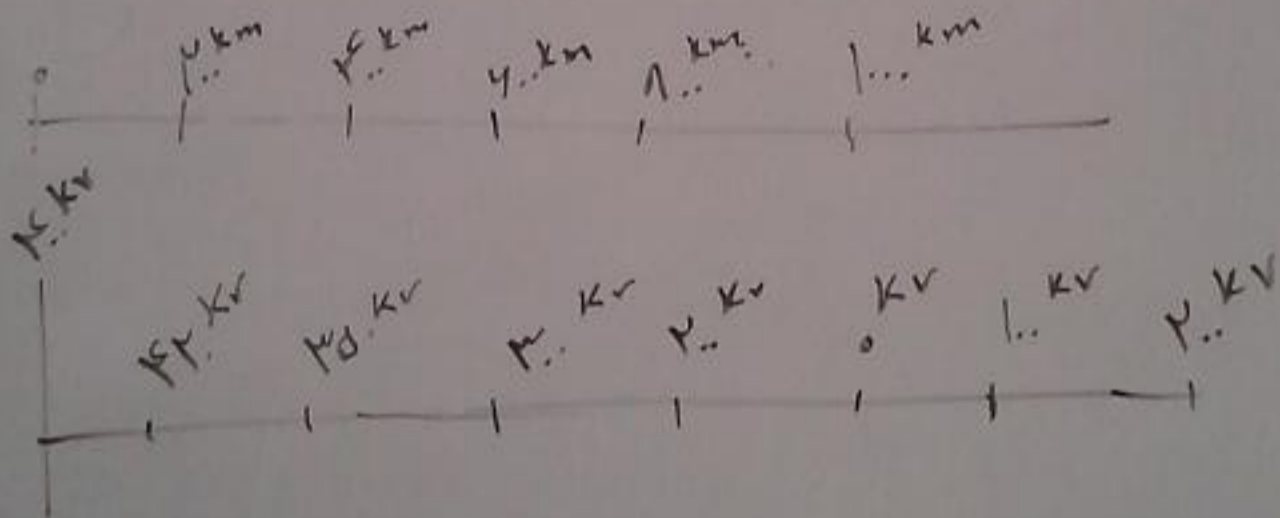 ۰ ۲۰۰ km ۴۰۰ km ۶۰۰ km ۸۰۰ km ۱۰۰۰ km
۴۰۰ kv
۴۲۰ kv ۳۵۰ kv ۳۰۰ kv ۲۰۰ kv ۰ kv ۱۰۰ kv ۲۰۰ kv